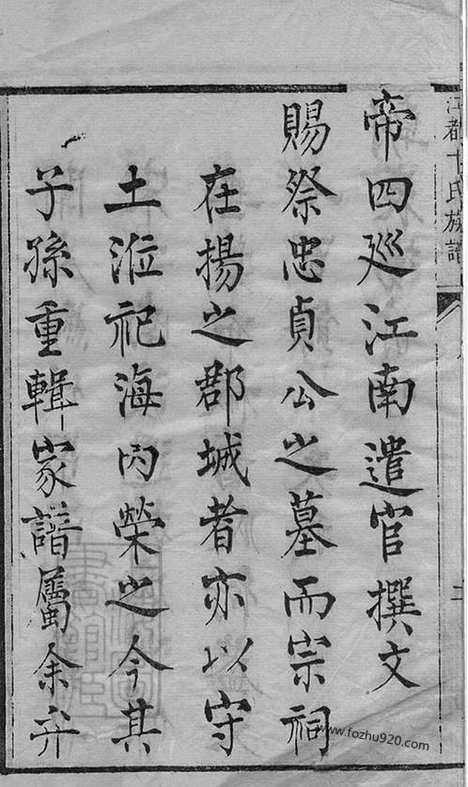 江都卞氏族譜
帝四巡江南遣官撰文
賜祭忠貞公之墓而宗祠
在揚之郡城者亦以守
土涖祀海内榮之今其
子孫重輯家譜屬余弁
www.fozhu920.com